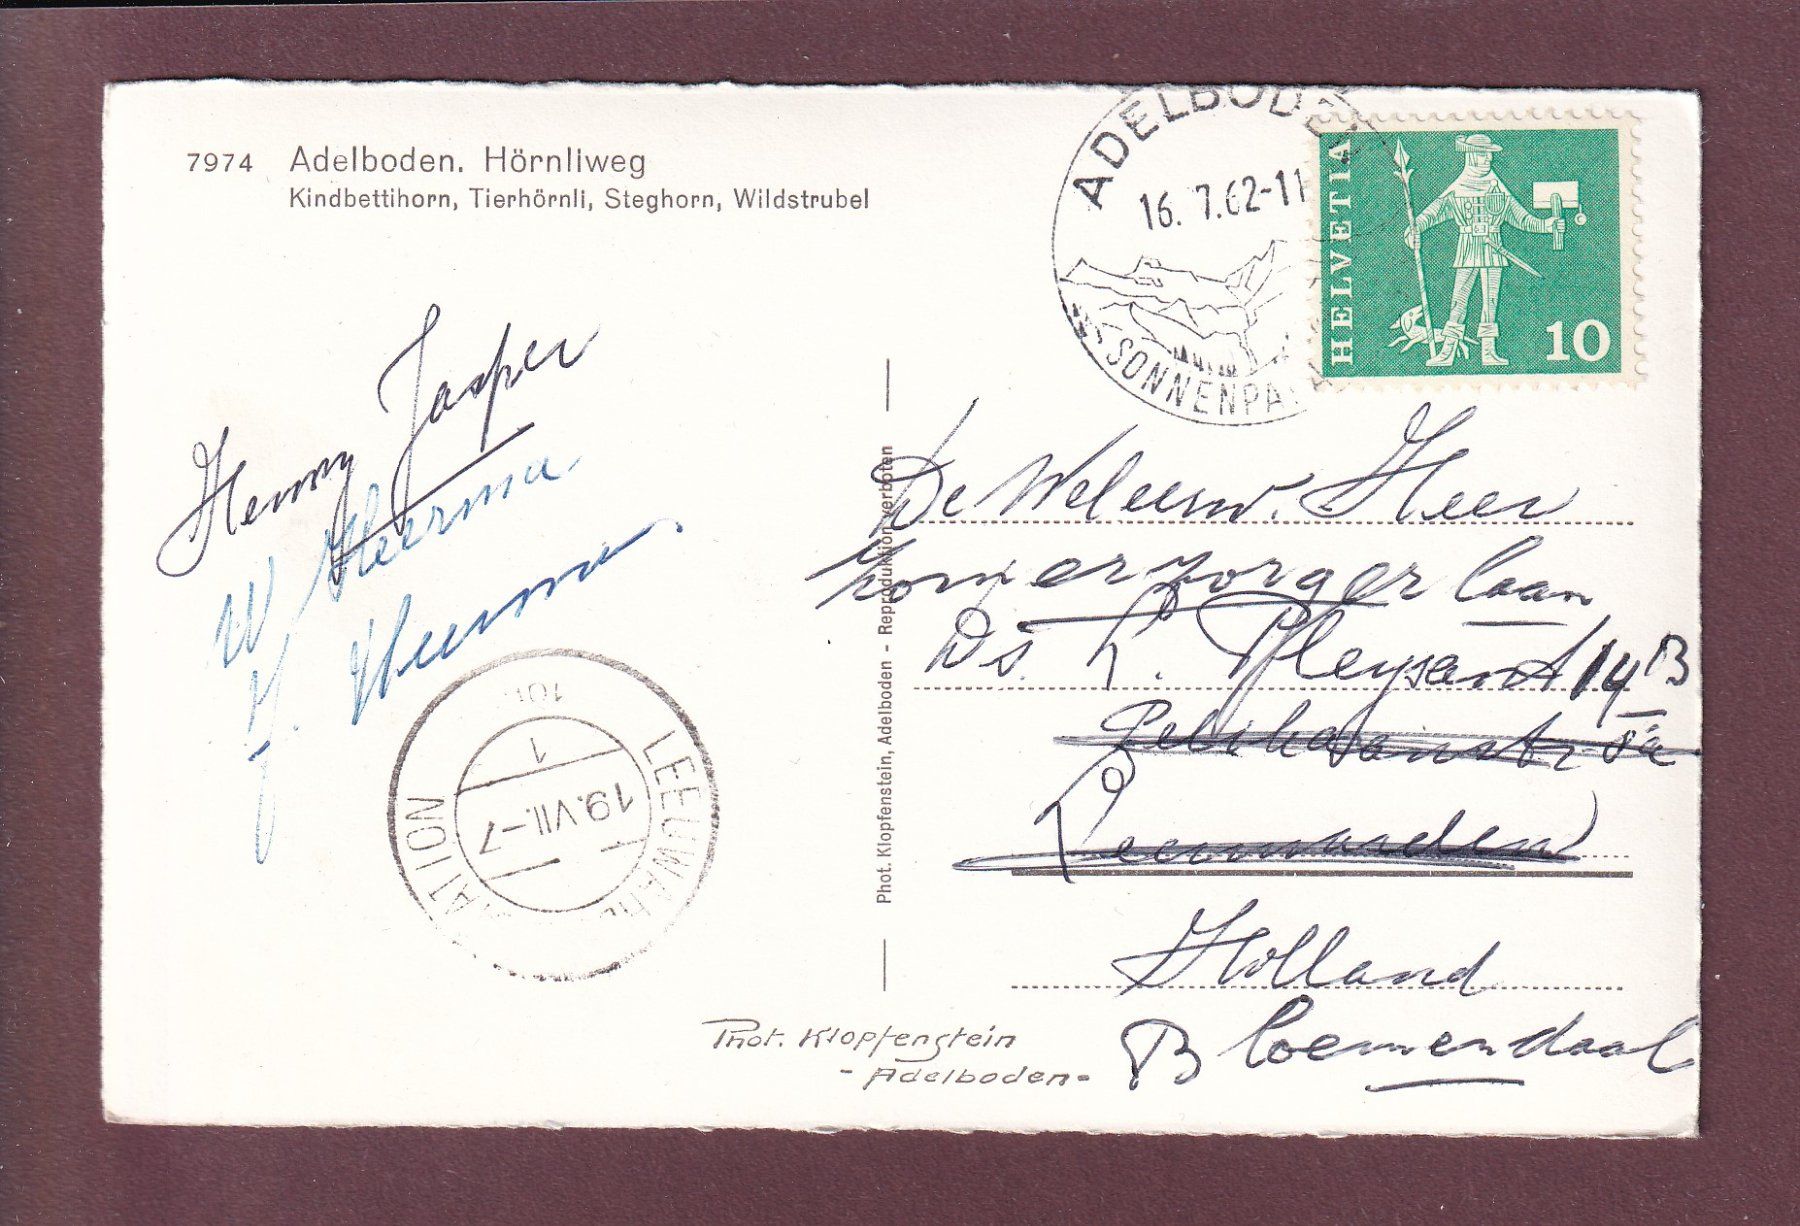 7974 Adelboden. Hörnliweg
Kindbettihorn, Tierhörnli, Steghorn, Wildstrubel
ADELBODEN
16. 7.62-11
SONNENPA
HELVETIA
10
Henny Jasper
W Heerma
Y. Heerma.
LEEUWAR ATION
1
19.VII.-7
Phot. Klopfenstein, Adelboden - Reproduktion verboten
De Weleerw. Heer
zomerzorgerlaan
Ds. L. Pleysant 14B
Leeuwarden
Holland
Bloemendaal
Phot. Klopfenstein
- Adelboden -